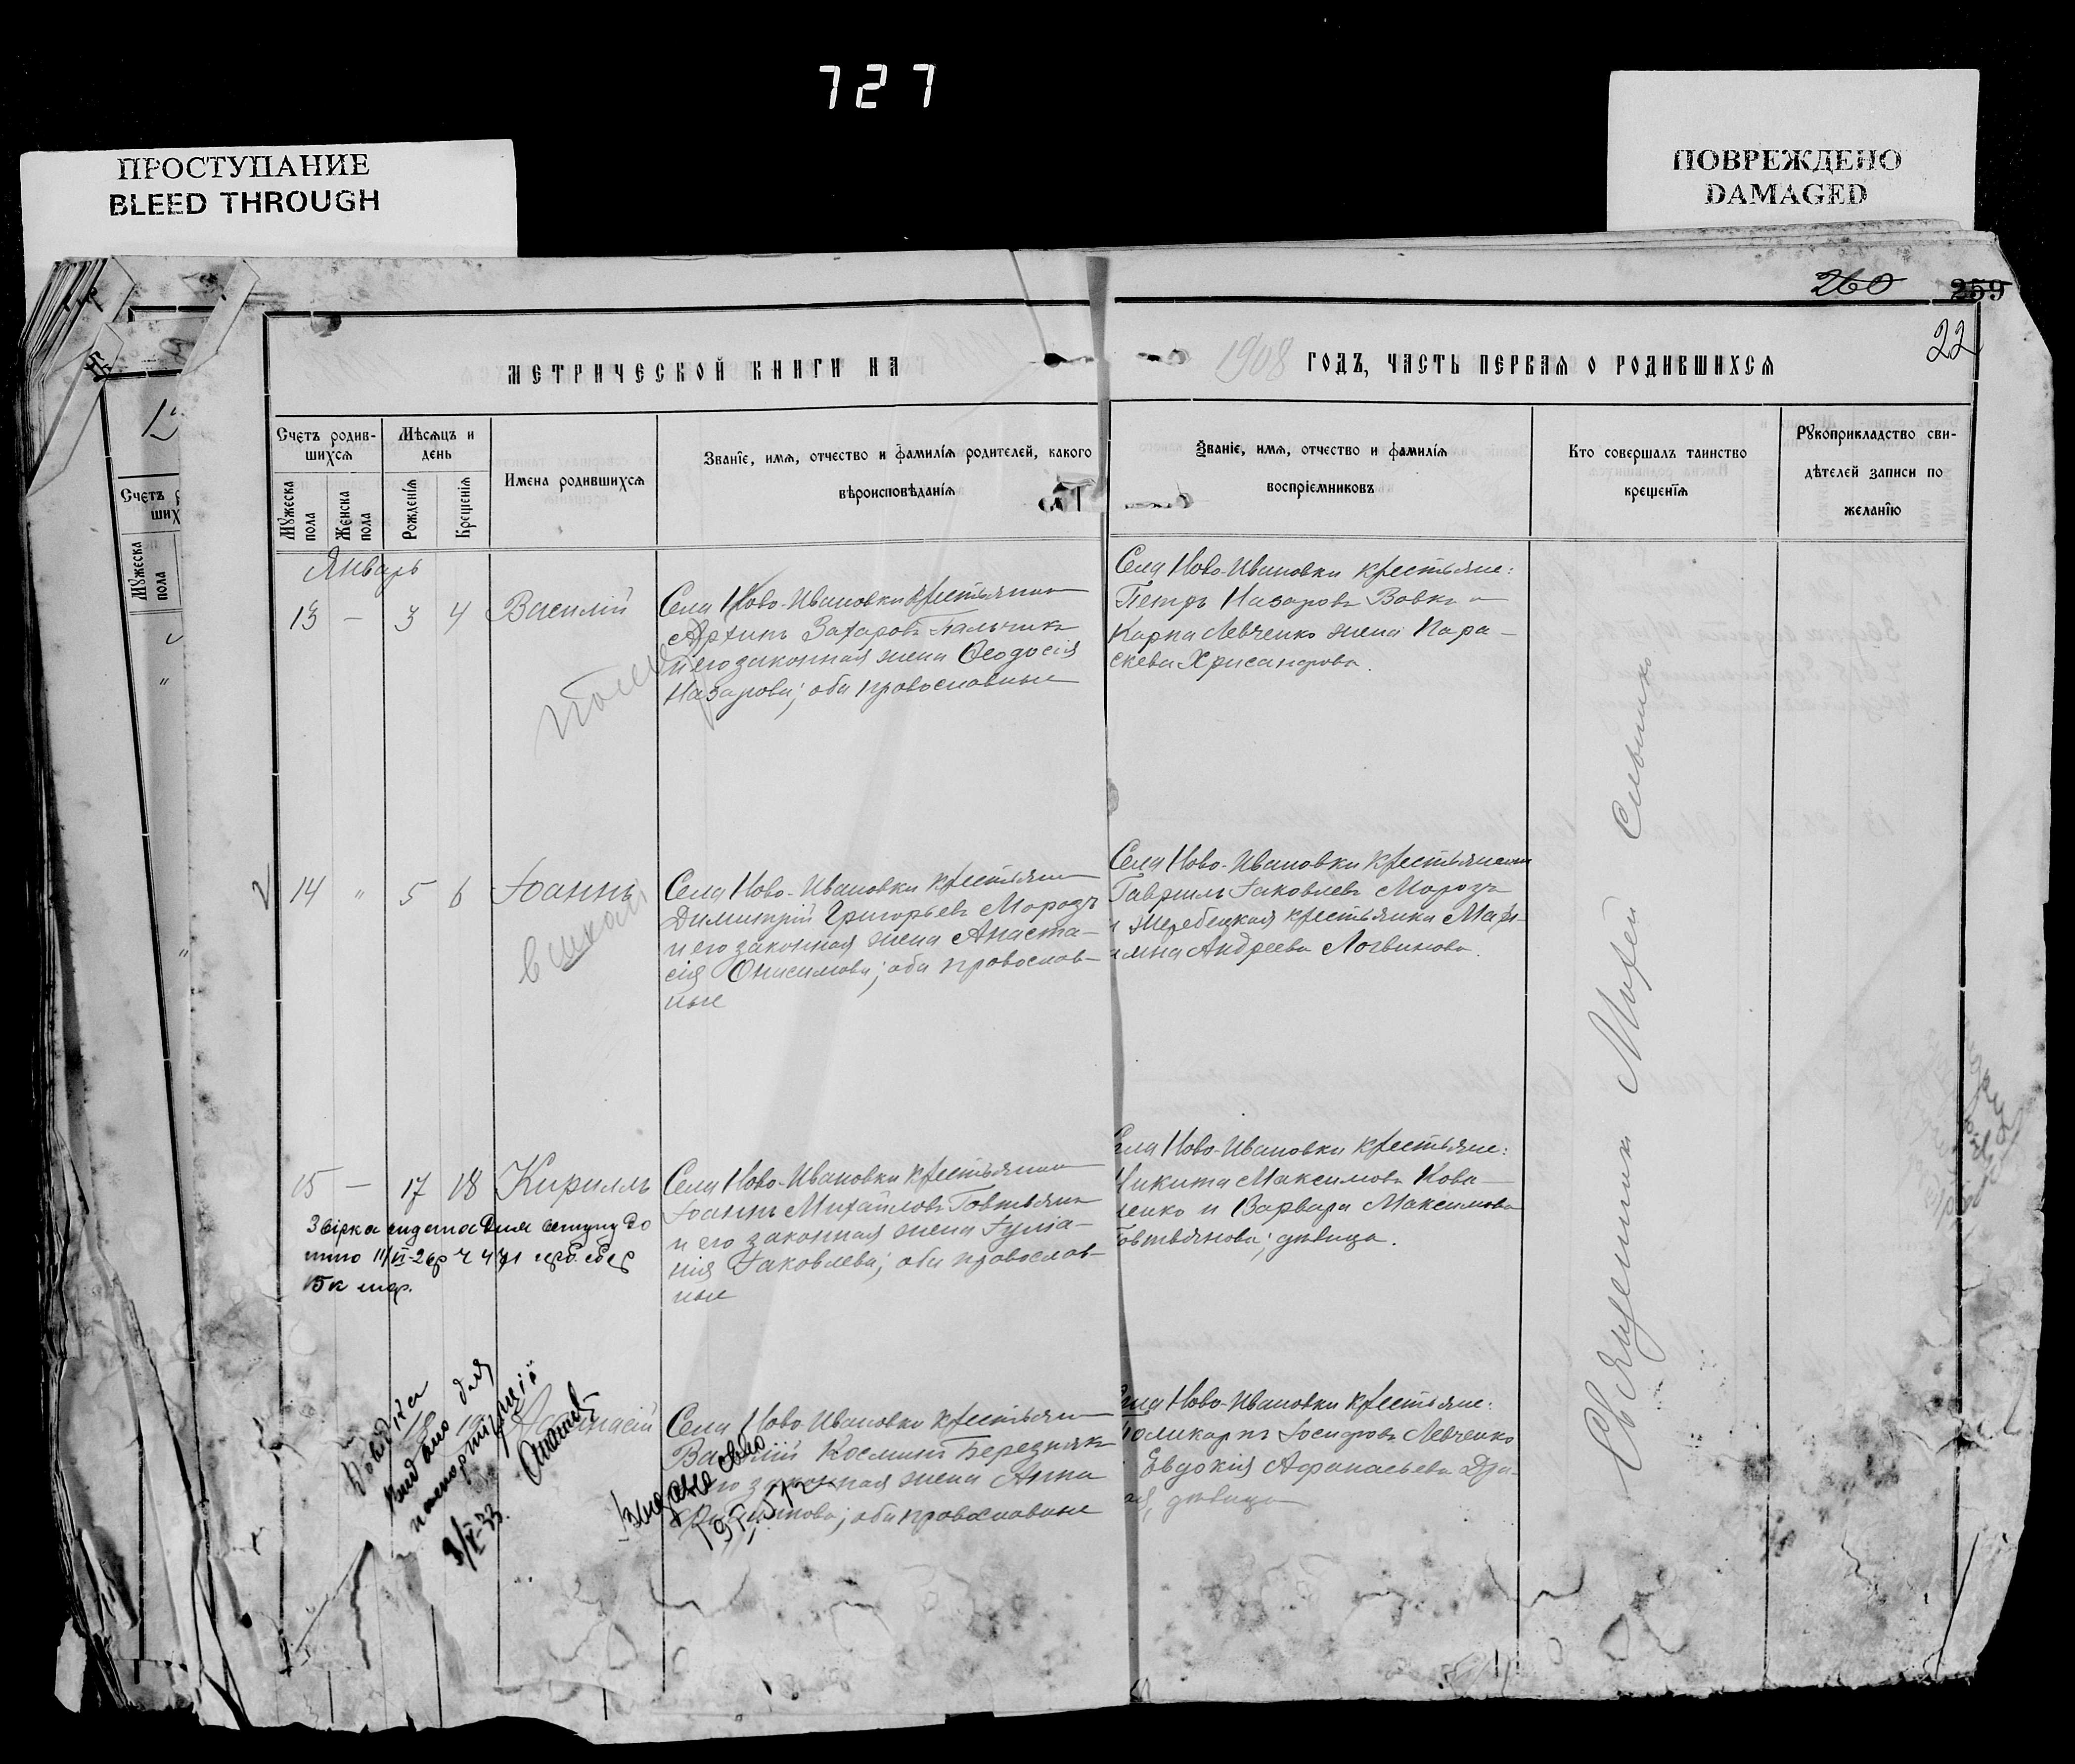 727
ПРОСТУПАНИЕ
BLEED THROUGH
ПОВРЕЖДЕНО
DAMAGED
260
259
22
МЕТРИЧЕСКОЙ КНИГИ НА
1908 ГОДЪ, ЧАСТЬ ПЕРВАЯ О РОДИВШИХСЯ
Счетъ родив-
шихся
Мѣсяцъ и
день
Мужеска пола
Женска пола
Рожденія
Крещенія
Имена родившихся
Званіе, имя, отчество и фамилія родителей, какого
вѣроисповѣданія
Званіе, имя, отчество и фамилія
воспріемниковъ
Кто совершалъ таинство
крещенія
Рукоприкладство сви-
дѣтелей записи по
желанію
Январь
13 — 3 4 Василій
Села Ново-Ивановки крестьянин
Архипъ Захаровъ Пальчикъ
и его законная жена Ѳеодосія
Назарова; оба православные
Села Ново-Ивановки крестьяне:
Петръ Назаровъ Вовкъ и
Карпа Левченко жена Пара-
скева Хрисанфова.
14 " 5 6 Іоаннъ
Села Ново-Ивановки крестьянин
Димитрій Григорьевъ Морозъ
и его законная жена Анаста-
сія Онисимова; оба православ-
ные
Села Ново-Ивановки крестьянинъ
Гавріилъ Іаковлевъ Морозъ
и Жеребецкая крестьянка
Андреева Логвинова.
15 — 17 18 Кириллъ
Села Ново-Ивановки крестьянин
Іоаннъ Михайловъ Говтвянъ
и его законная жена Іуліа-
нія Іаковлева; оба православ-
ные
Села Ново-Ивановки крестьяне:
Никита Максимовъ Кова-
ленко и Варвара Максимова
Говтвянова; дѣвица.
видана для вступу до
15 к
18 19 Аѳанасій
Села Ново-Ивановки крестьянин
Василій Косминъ Бережнякъ
и его законная жена Анна
оба православные
Села Ново-Ивановки крестьяне:
Поликарпъ Іосифовъ Левченко
Евдокія Аѳанасьева
дѣвица
Довідка
видано для
паспортизації
Священникъ Михей